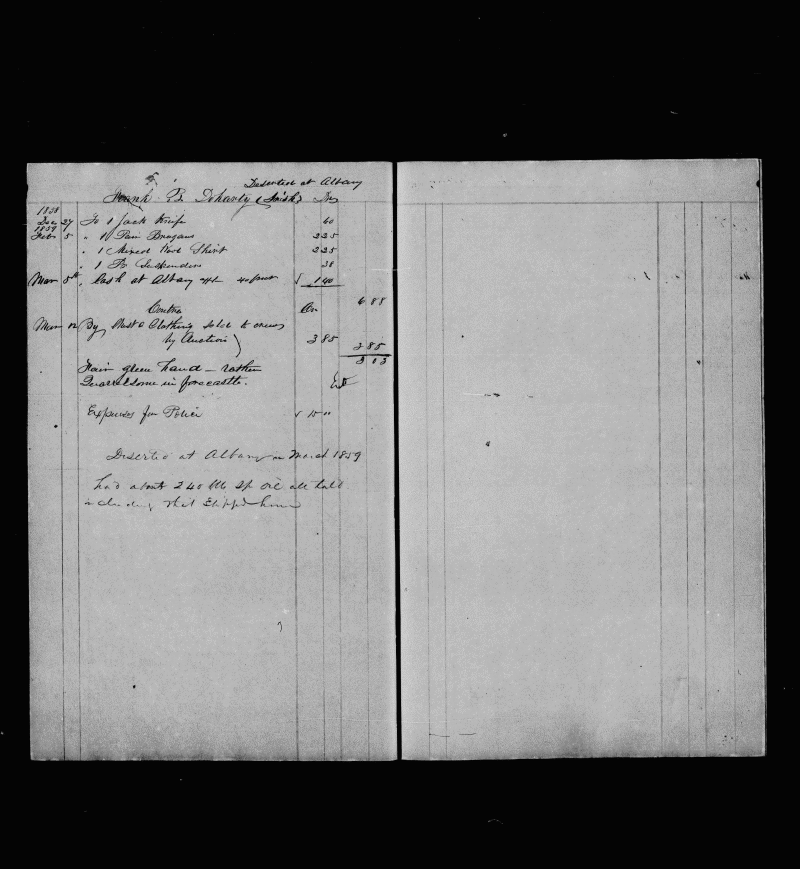 Deserted at Albany
Frank B. Doharty (Irish) Dr
1858
Dec 27 To 1 Jack Knife 60
1859
Feby 5 " 1 Pair Brogans 225
" 1 Mixed Wool Shirt 225
" 1 Pr Suspenders 38
Mar 8th " Cash at Albany 140
6 88
Contra Cr
Mar 12 By Chest & Clothing sold to crew
by Auction 3 85 3 85
3 03
Fair green hand – rather
Quarrelsome in forecastle.
Expenses for Police 15 00
Deserted at Albany in March 1859
had about 240 bbls Sp Oil all told
including that shipped home